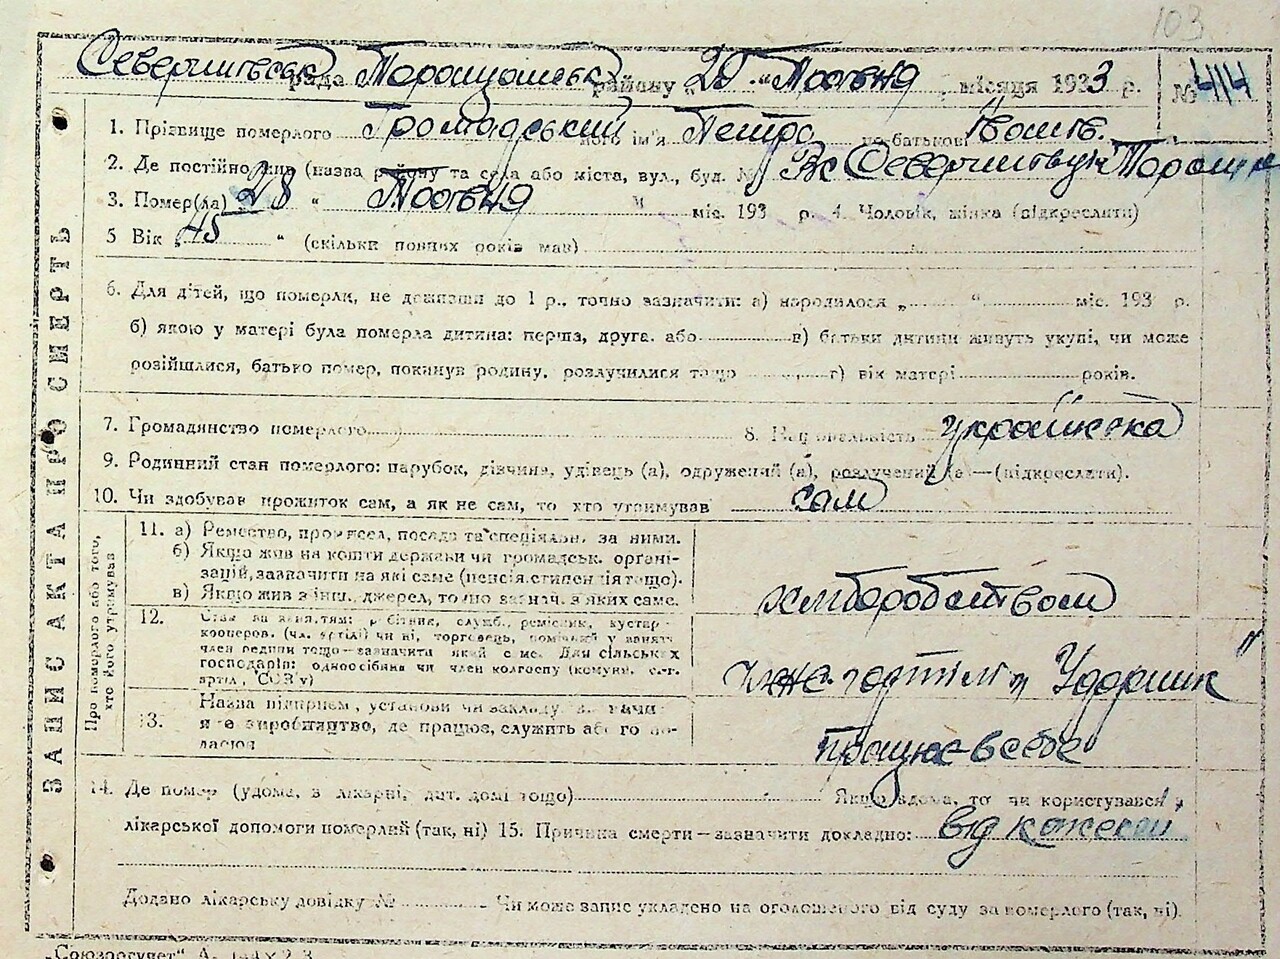 103
рада Таращанськ району „28" Травня місяця 1933 р. № 414
1. Прізвище померлого Громадський його ім'я Петро по батькові
2. Де постійно жив (назва району та села або міста, вул., буд. №
3. Помер(ла) 28 " Травня " міс. 193 р. 4. Чоловік, жінка (підкреслити)
5 Вік „45 " (скільки повних років мав)
6. Для дітей, що померли, не доживши до 1 р., точно зазначити: а) народилося „ " міс. 193 р.
б) якою у матері була померла дитина: перша, друга. або в) батьки дитини живуть укупі, чи може
розійшлися, батько помер, покинув родину, розлучилися тощо г) вік матері років.
7. Громадянство померлого 8. Національність українська
9. Родинний стан померлого: парубок, дівчина, удівець (а), одружений (а), розлучений (а—(підкреслити).
10. Чи здобував прожиток сам, а як не сам, то хто утримував сам
ЗАПИС АКТА ПРО СМЕРТЬ
Про померлого або того, хто його утримував
11. а) Ремество, промисел, посада та спеціальн. за ними.
б) Якщо жив на кошти держави чи громадськ. органі-
зацій, зазначити на які саме (пенсія, стипендія тощо).
в) Якщо жив з інш. джерел, точно зазнач. з яких саме.
хліборобством
12. Стан за заняттям: робітник, служб., ремісник, кустар-
кооперов. (чл. артілі) чи ні, торговець, помічний у занятт.
член родини тощо—зазначити який саме. Для сільських
господарів: одноосібник чи член колгоспу (комуни, с.-г.
артіл., СОЗ'у)
член артілі „Ударник"
13. Назва підприєм., установи чи закладу,
виробництво, де працює, служить або го по-
працює в себе
14. Де помер (удома, в лікарні, дит. домі тощо) Якщо вдома, то чи користувався
лікарської допомоги померлий (так, ні) 15. Причина смерти—зазначити докладно: від
Додано лікарську довідку № Чи може запис укладено на оголошеного від суду за померлого (так, ні).